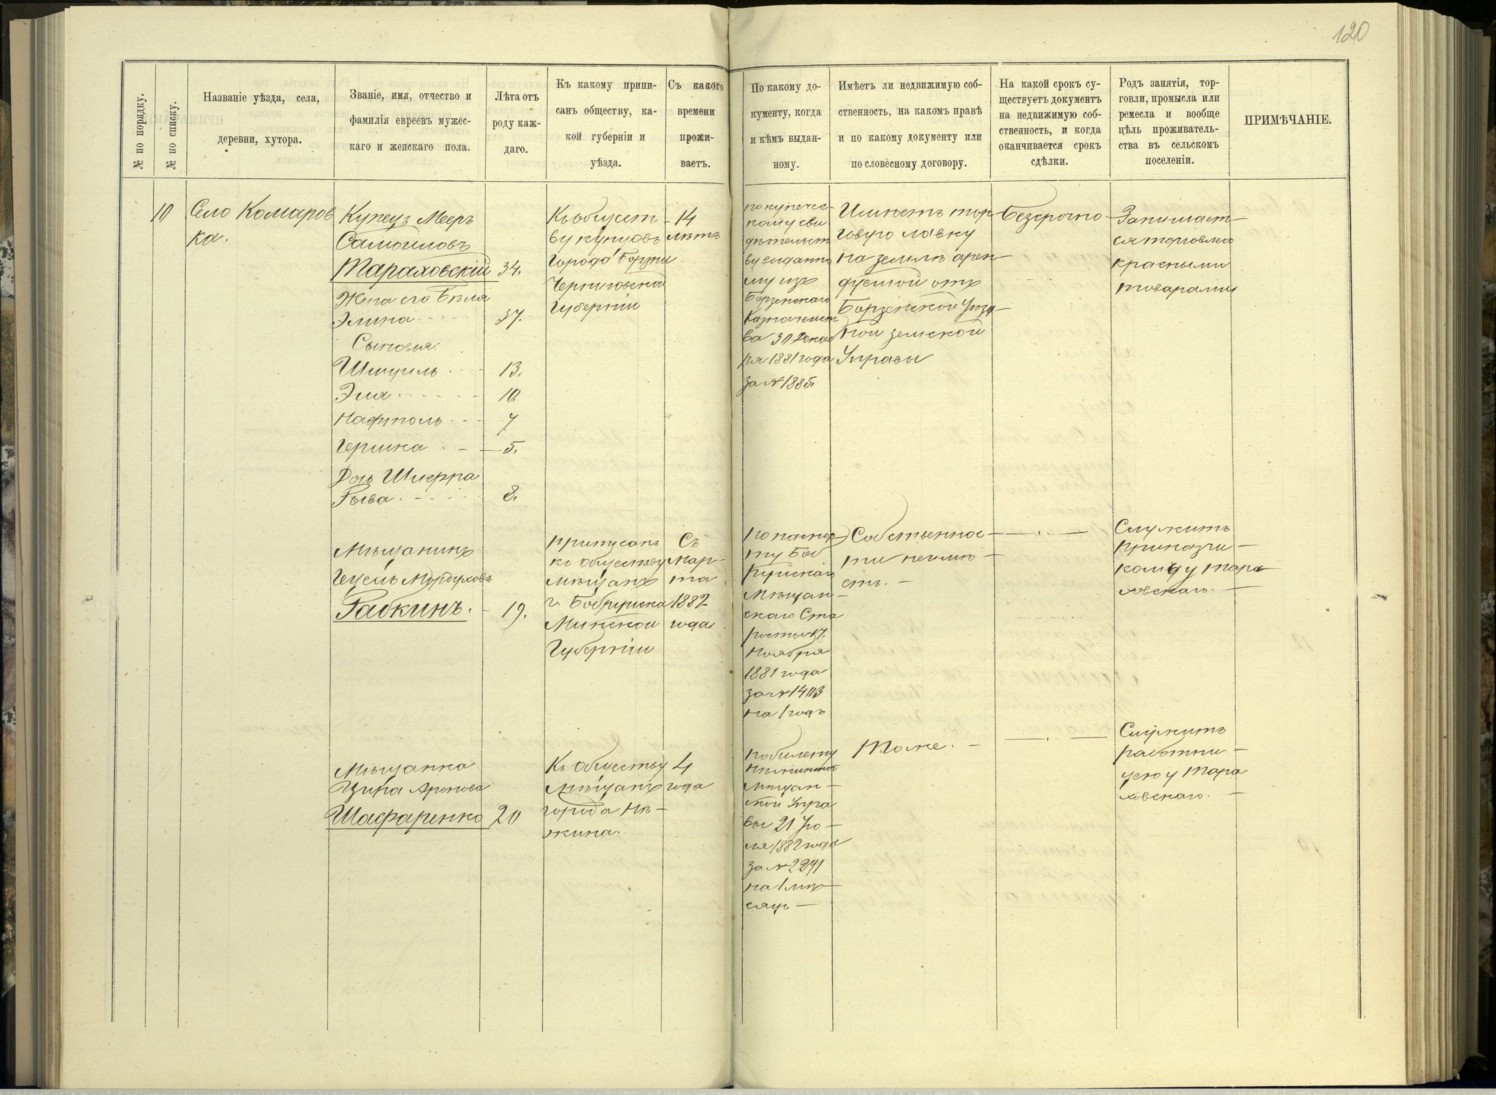 120
№ по порядку.
№ по списку.
Названіе уѣзда, села,
деревни, хутора.
Званіе, имя, отчество и
фамилія евреевъ мужес-
каго и женскаго пола.
Лѣта отъ
роду каж-
даго.
Къ какому припи-
санъ обществу, ка-
кой губерніи и
уѣзда.
Съ какого
времени
прожи-
ваетъ.
По какому до-
кументу, когда
и кѣмъ выдан-
ному.
Имѣетъ ли недвижимую соб-
ственность, на какомъ правѣ
и по какому документу или
по словесному договору.
На какой срокъ су-
ществуетъ документъ
на недвижимую соб-
ственность, и когда
оканчивается срокъ
сдѣлки.
Родъ занятія, тор-
говли, промысла или
ремесла и вообще
цѣль проживатель-
ства въ сельскомъ
поселеніи.
ПРИМѢЧАНІЕ.
10
Село Комаров
ка.
Купецъ Мееръ
Самойловъ
Тараховскій 34.
Жена его Бейля
Элина 37.
Сыновья:
Шмуиль 13.
Эля 10
Нафтоль 7
Гершка 5.
Дочь Шифра
Рыва 8.
Къ общест-
ву купцовъ
города Борзны
Черниговской
Губерніи
14
лѣтъ
по купечес-
кому сви
дѣтельст
ву выданно
му изъ
Борзенскаго
Казначейст
ва 30 Декаб
ря 1881 года
за № 1885
Имѣетъ тор-
говую лавку
на землѣ арен
дуемой отъ
Борзенской Уѣзд-
ной земской
Управы
безсрочно
Занимает-
ся торговлею
красными
товарами
Мѣщанинъ
Гецель Мордуховъ
Рабкинъ. 19.
приписанъ
къ обществу
мѣщанъ
г. Бобруйска
Минской
Губерніи
Съ
Мар-
та
1882
года
по паспор
ту Боб
руйскаго
Мѣщан-
скаго Ста
росты 17
Ноября
1881 года
за № 1403
на 1 годъ
Собственнос-
ти неимѣ-
етъ. -
Служитъ
прикащи-
комъ у Тара-
ховскаго. -
Мѣщанка
Цира Аронова
Шафаренко 20
Къ обществу
мѣщанъ
города Нѣ-
жина.
4
года
по билету
Нѣжинской
мѣщан-
ской Упра
вы 21 Ию-
ля 1882 года
за № 2241
на 1 мѣ-
сяцъ -
Тоже. -
Служитъ
работни-
цею у Тара
ховскаго. -